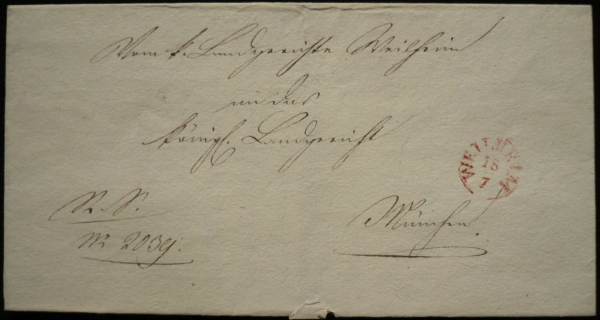 Vom k. Landgerichte Weilheim
an das
Königl. Landgericht
WEILHEIM
16
7
R. S.
München.
Nr. 2039.